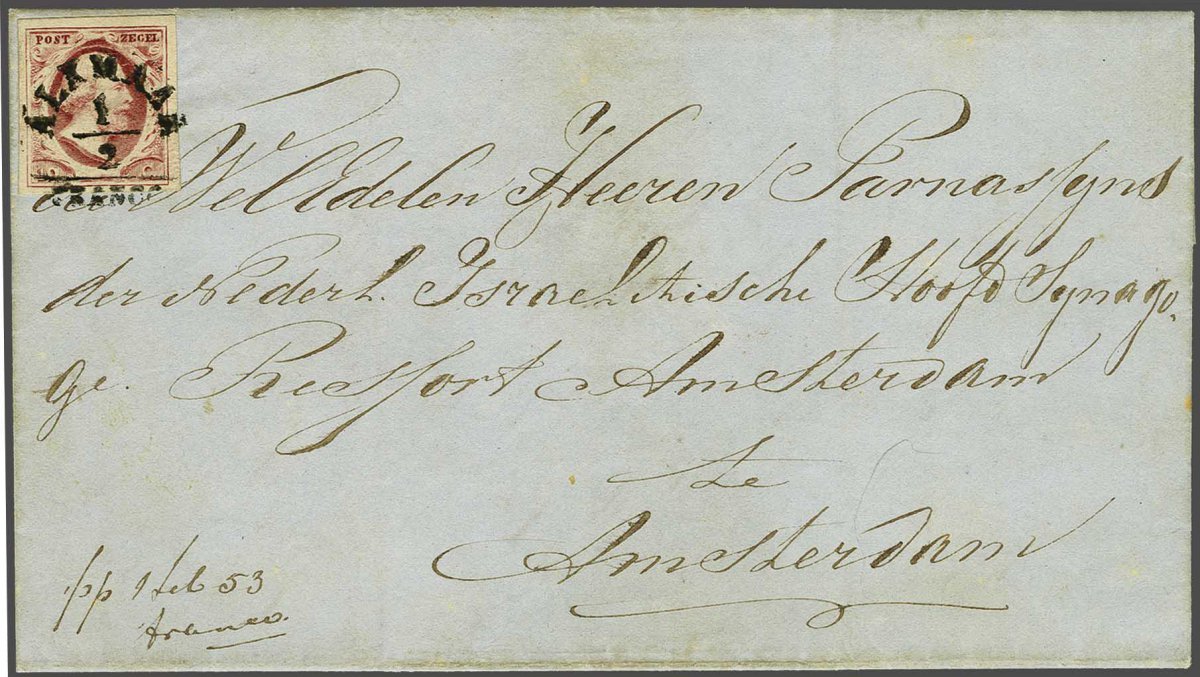 POST ZEGEL
ALKMAAR
1
2
FRANCO
WelEdelen Heeren Parnassyns
der Nederl. Israelitische Hoofd Synago,
ge. Ressort Amsterdam
te
Amsterdam
pp 1 feb 53
franco.